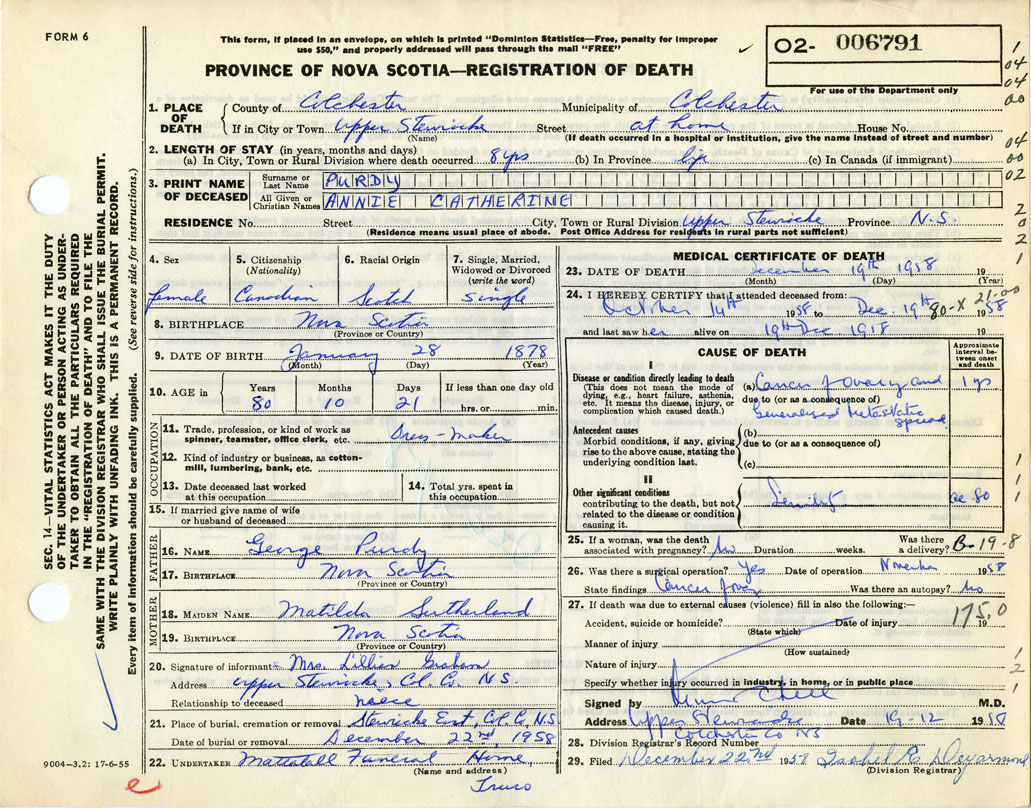 FORM 6
This form, if placed in an envelope, on which is printed "Dominion Statistics—Free, penalty for improper
use $50," and properly addressed will pass through the mail "FREE"
✓ O2- 006791
For use of the Department only
PROVINCE OF NOVA SCOTIA—REGISTRATION OF DEATH
1. PLACE OF DEATH County of Colchester Municipality of Colchester
If in City or Town Upper Stewiacke Street at home House No.
(Name) (If death occurred in a hospital or institution, give the name instead of street and number)
2. LENGTH OF STAY (in years, months and days)
(a) In City, Town or Rural Division where death occurred 8 yrs (b) In Province life (c) In Canada (if immigrant)
3. PRINT NAME OF DECEASED
Surname or Last Name PURDY
All Given or Christian Names ANNIE CATHERINE
RESIDENCE No. Street City, Town or Rural Division Upper Stewiacke Province N.S.
(Residence means usual place of abode. Post Office Address for residents in rural parts not sufficient)
4. Sex 5. Citizenship (Nationality) 6. Racial Origin 7. Single, Married, Widowed or Divorced (write the word)
female Canadian Scotch single
8. BIRTHPLACE Nova Scotia
(Province or Country)
9. DATE OF BIRTH January 28 1878
(Month) (Day) (Year)
10. AGE in Years Months Days If less than one day old
80 10 21 hrs. or min.
OCCUPATION
11. Trade, profession, or kind of work as spinner, teamster, office clerk, etc. Dress-maker
12. Kind of industry or business, as cotton-mill, lumbering, bank, etc.
13. Date deceased last worked at this occupation
14. Total yrs. spent in this occupation
15. If married give name of wife or husband of deceased
FATHER
16. NAME George Purdy
17. BIRTHPLACE Nova Scotia
(Province or Country)
MOTHER
18. MAIDEN NAME Matilda Sutherland
19. BIRTHPLACE Nova Scotia
(Province or Country)
20. Signature of informant Mrs. Lillian Graham
Address Upper Stewiacke, Col. Co. N.S.
Relationship to deceased niece
21. Place of burial, cremation or removal Stewiacke East, Col. Co, N.S.
Date of burial or removal December 22nd, 1958
22. UNDERTAKER Mattatall Funeral Home,
(Name and address)
Truro
MEDICAL CERTIFICATE OF DEATH
23. DATE OF DEATH December 19th 1958 19
(Month) (Day) (Year)
24. I HEREBY CERTIFY that I attended deceased from: 21-00
October 14th 1958 to Dec. 19th 80-X 1958
and last saw her alive on 19th Dec 1958 19
CAUSE OF DEATH
Approximate interval between onset and death
I
Disease or condition directly leading to death
(This does not mean the mode of dying, e.g., heart failure, asthenia, etc. It means the disease, injury, or complication which caused death.)
(a) Cancer of ovary and 1 yr
due to (or as a consequence of)
Generalized Metastatic spread
Antecedent causes
Morbid conditions, if any, giving rise to the above cause, stating the underlying condition last.
(b)
due to (or as a consequence of)
(c)
II
Other significant conditions
contributing to the death, but not related to the disease or condition causing it.
Senility 80
25. If a woman, was the death associated with pregnancy? No Duration weeks. Was there a delivery? B-19-8
26. Was there a surgical operation? Yes Date of operation November 1958
State findings Cancer ovary Was there an autopsy? No
27. If death was due to external causes (violence) fill in also the following:—
Accident, suicide or homicide? Date of injury 19
175.0
(State which)
Manner of injury
(How sustained)
Nature of injury
Specify whether injury occurred in industry, in home, or in public place
Signed by M.D.
Address Upper Stewiacke Date 19-12 1958
Colchester Co NS
28. Division Registrar's Record Number
29. Filed December 22nd 195 Isobel E. Deyarmond
(Division Registrar)
1
04
04
00
04
00
02
2
0
2
1
1
1
1
1
2
1
SEC. 14—VITAL STATISTICS ACT MAKES IT THE DUTY
OF THE UNDERTAKER OR PERSON ACTING AS UNDER-
TAKER TO OBTAIN ALL THE PARTICULARS REQUIRED
IN THE "REGISTRATION OF DEATH" AND TO FILE THE
SAME WITH THE DIVISION REGISTRAR WHO SHALL ISSUE THE BURIAL PERMIT.
WRITE PLAINLY WITH UNFADING INK. THIS IS A PERMANENT RECORD.
Every item of information should be carefully supplied. (See reverse side for instructions.)
9004—3.2: 17-6-55
e